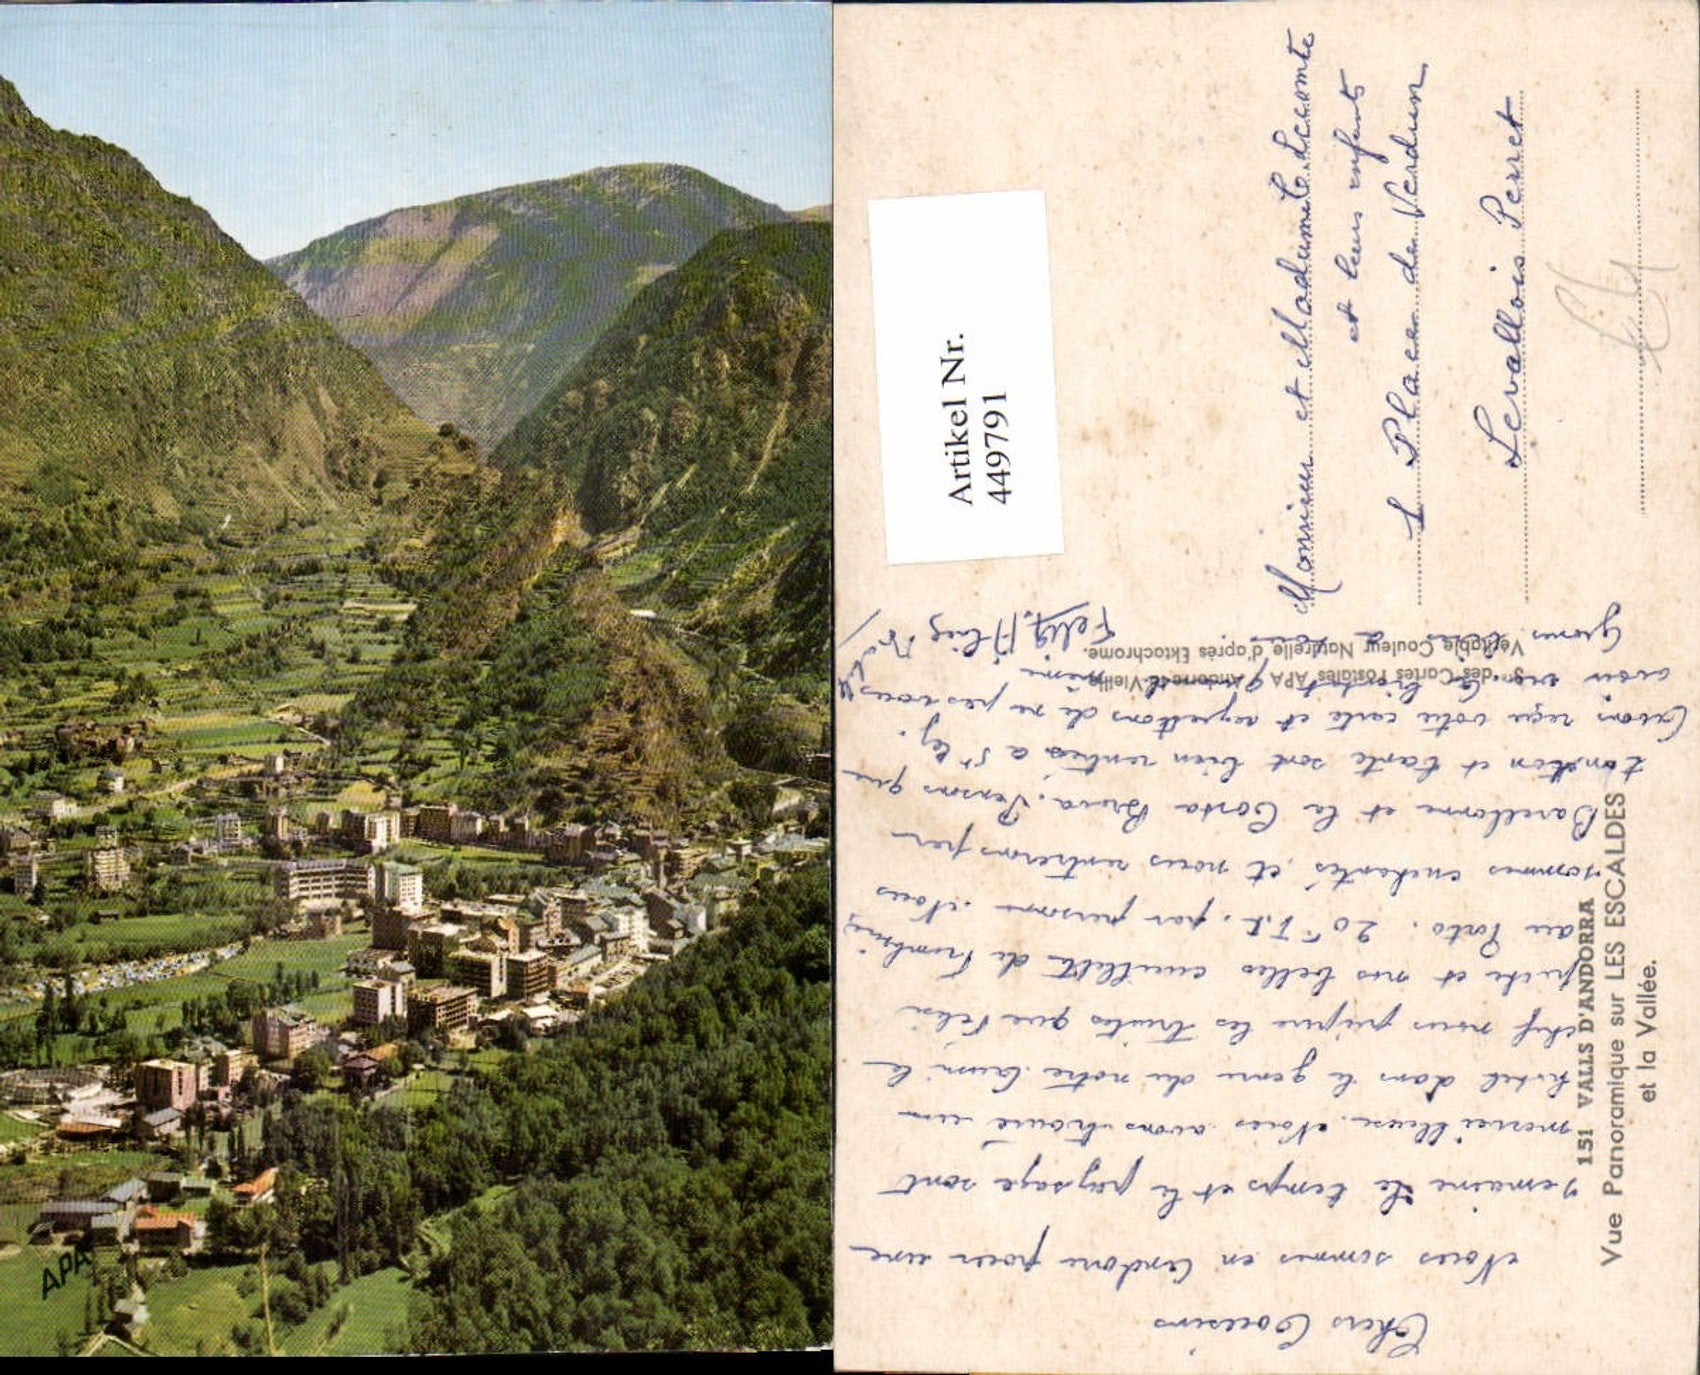 APA
Artikel Nr.
449791
Monsieur et Madame Lecomte
et leurs enfants
1 Place de Verdun
Levallois Perret
151 VALLS D'ANDORRA
Vue Panoramique sur LES ESCALDES
et la Vallée.
des Cartes Postales APA Andorre-la-Vieille
Véritable Couleur Naturelle d'après Ektachrome.
Chers Cousins
Nous sommes en Andorre pour une
semaine le temps et le paysage sont
merveilleux. Nous avons trouvé un
hotel dans le genre du notre aussi le
chef nous prépare les truites que Félix
pêche et nos belles cueillette de
au Porto. 20 par personne. Nous
sommes enchantés et nous rentrerons par
Barcelonne et la Costa Brava. Pensons que
tonton et tante sont bien rentrés a St
avons reçu votre carte et regrettons de ne pas vous
avoir vu
Gros